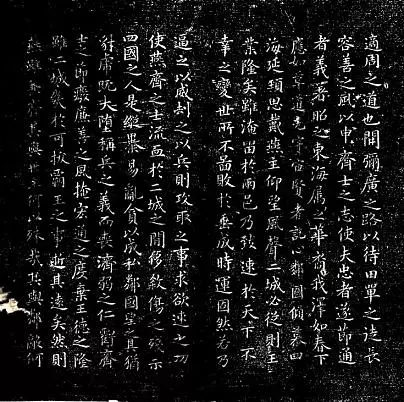 適周之道也開彌廣之路以待田單之徒長
容善之風以申齊士之志使夫忠者遂節通
者義著昭之東海属之華裔我澤如春下
應如草道光宇宙賢者託心鄰國傾慕四
海延頸思戴燕主仰望風聲二城必從則王
業隆矣雖淹留於兩邑乃致速於天下不
幸之變世所不啚敗於垂成時運固然若乃
逼之以威劫之以兵則攻取之事求欲速之功
使燕齊之士流血於二城之間侈煞傷之殘示
四國之人是縱暴易亂貪以成私鄰國望之其猶
豺虎既大墮稱兵之義而喪濟弱之仁虧齊
士之節廢廉善之風掩宏通之度棄王德之隆
雖二城幾於可拔霸王之事逝其遠矣然則
燕雖兼齊其與世主何以殊哉其與鄰敵何